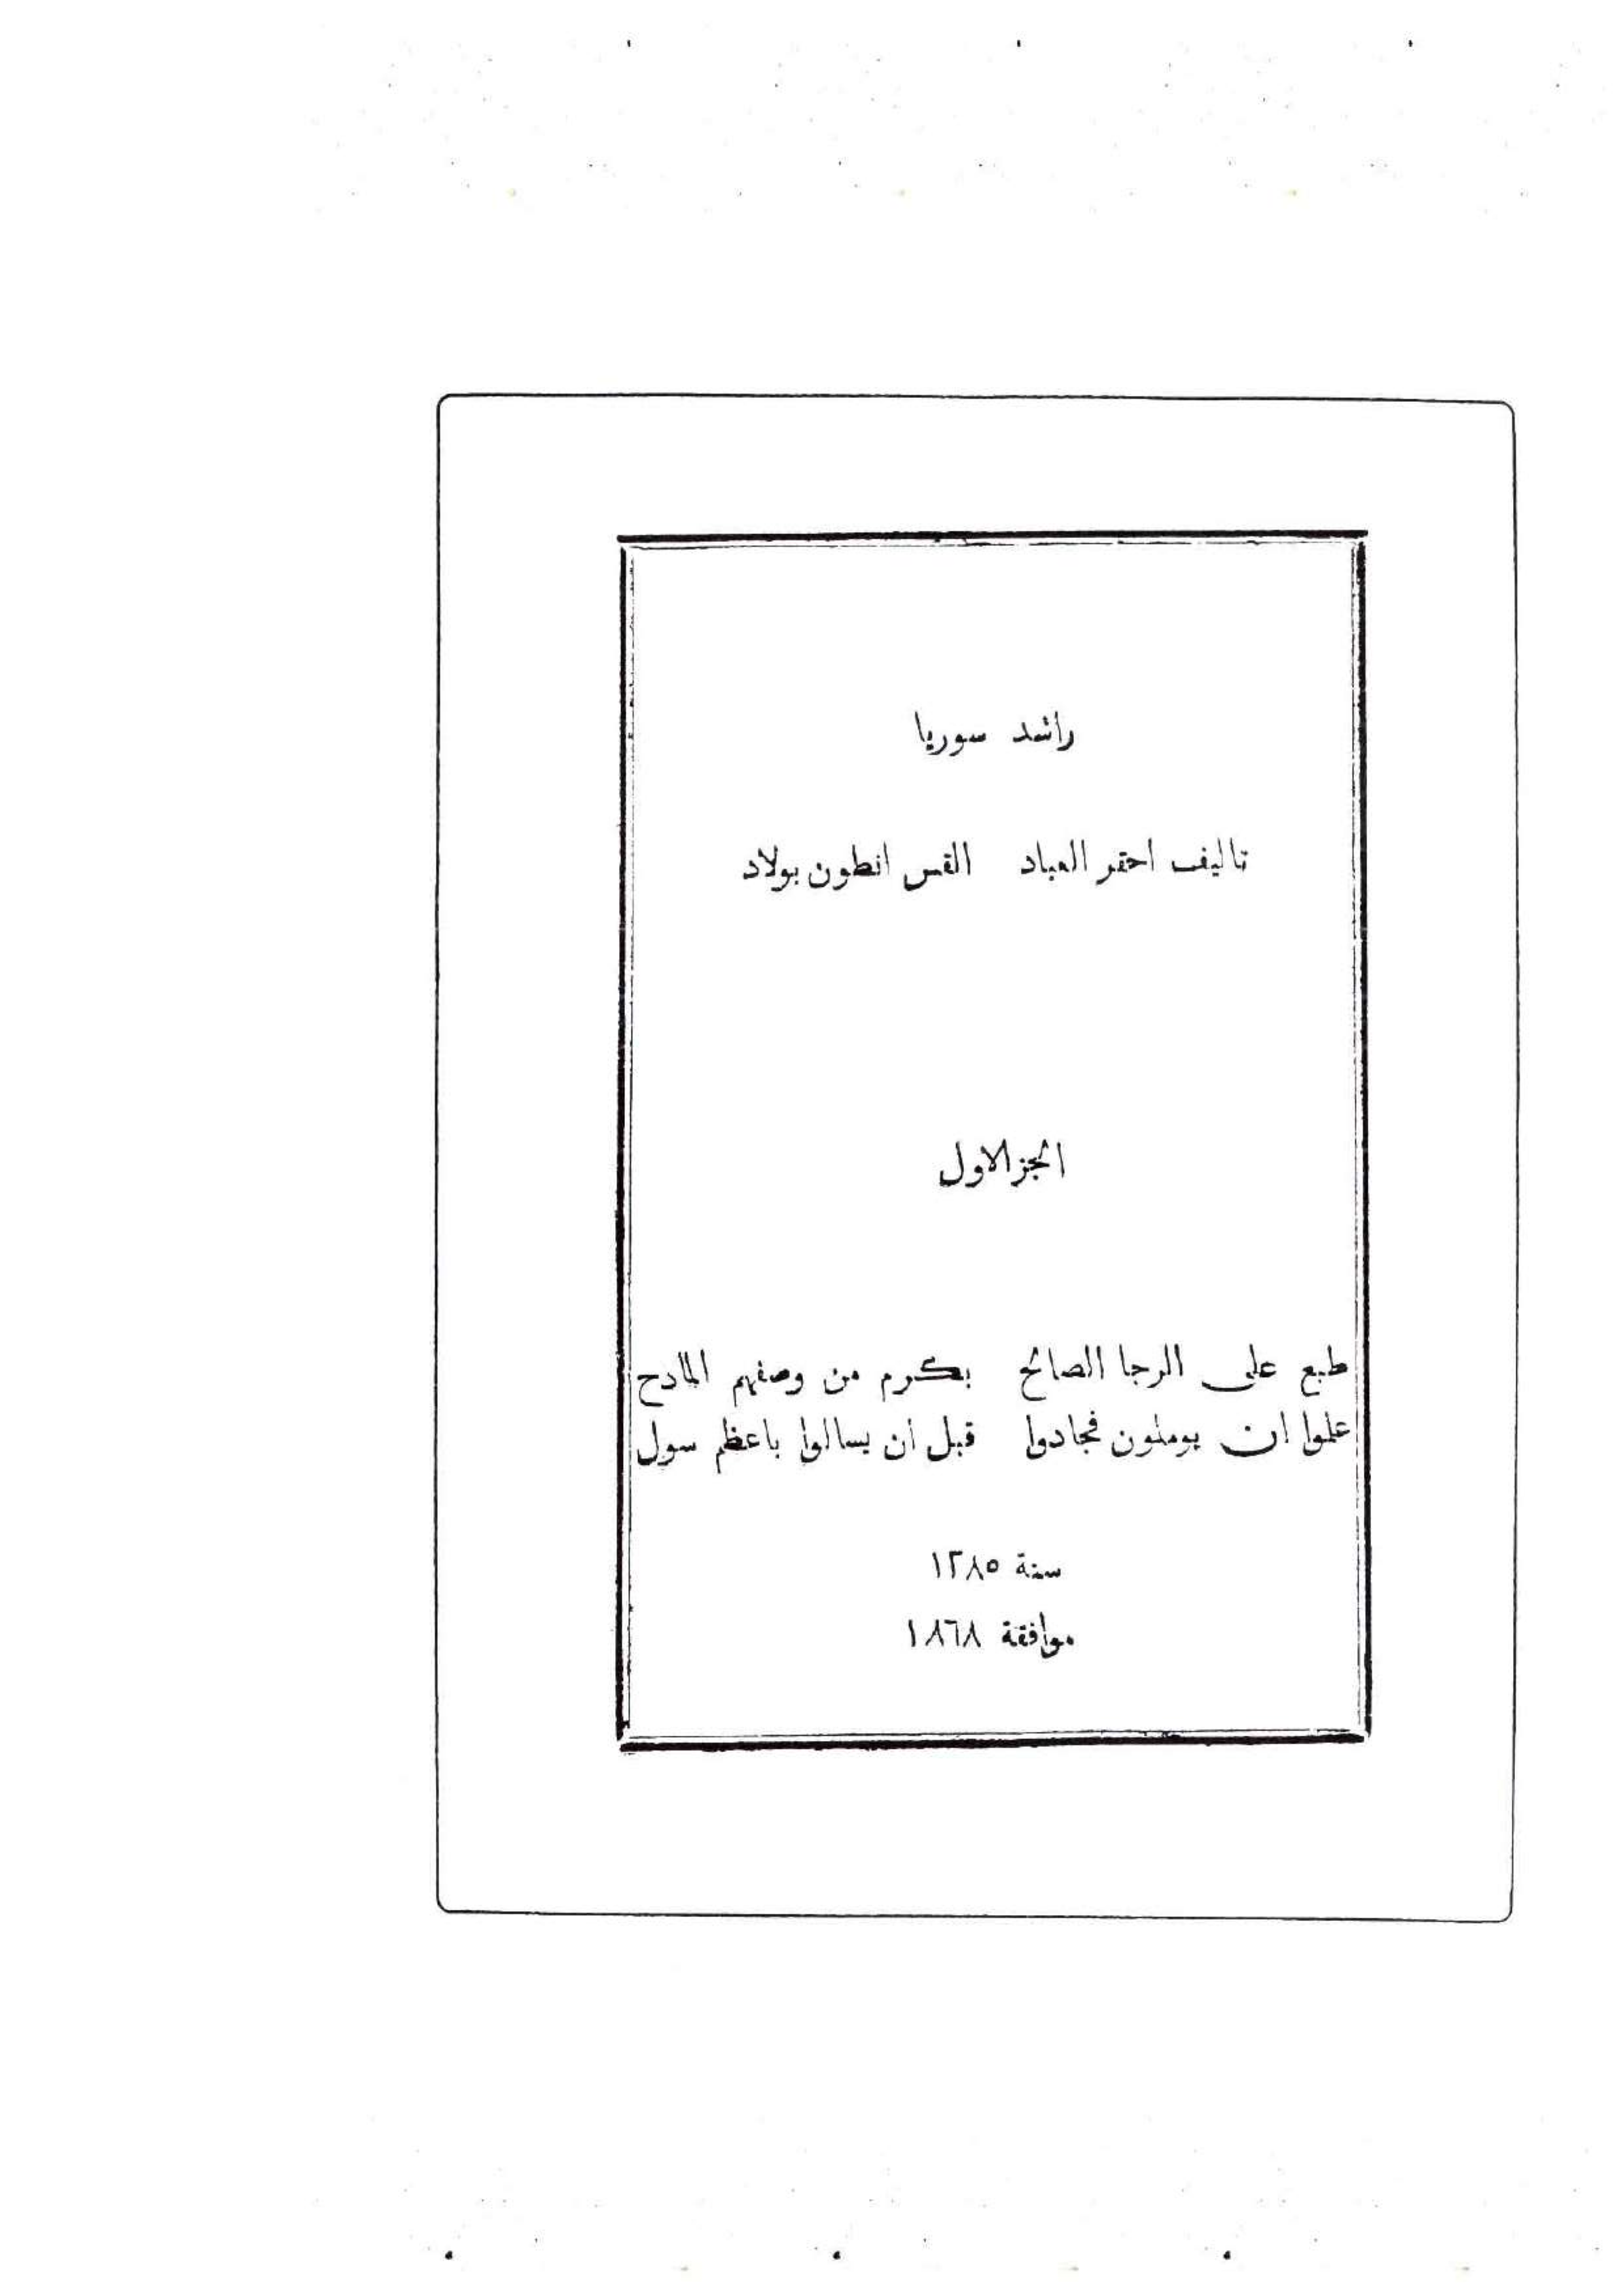 راشد سوريا
تاليف احقر العباد القس انطون بولاد
الجز الاول
طبع على الرجا الصالح بكرم من وصفهم المادح
علموا ان يوملون فجادوا قبل ان يسالوا باعظم سول
سنة ١٢٨٥
موافقة ١٨٦٨